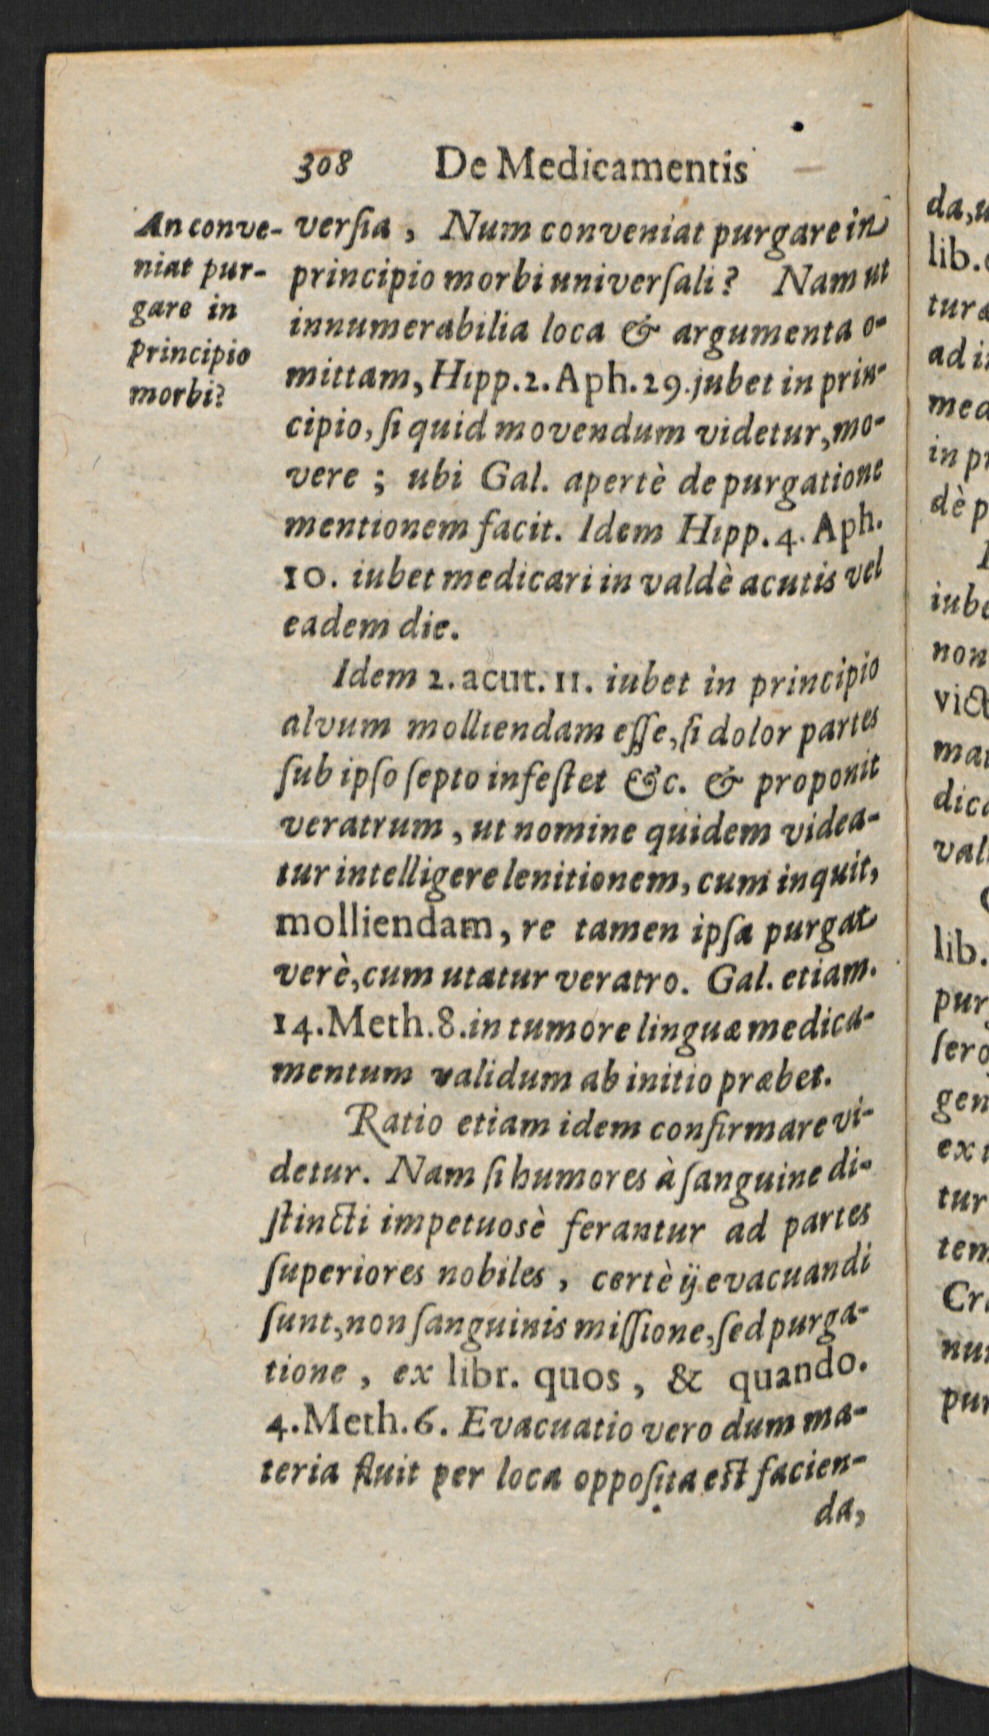 308 De Medicamentis
An conve-
niat pur-
gare in
principio
morbi?
verſia, Num conveniat purgare in
principio morbi univerſali? Nam ut
innumerabilia loca & argumenta o-
mittam, Hipp. 2. Aph. 29. jubet in prin-
cipio, ſi quid movendum videtur, mo-
vere; ubi Gal. apertè de purgatione
mentionem facit. Idem Hipp. 4. Aph.
10. iubet medicari in valdè acutis vel
eadem die.
Idem 2. acut. 11. iubet in principio
alvum molliendam eſſe, ſi dolor partes
ſub ipſo ſepto infeſtet &c. & proponit
veratrum, ut nomine quidem videa-
tur intelligere lenitionem, cum inquit,
molliendam, re tamen ipſa purgat
verè, cum utatur veratro. Gal. etiam.
14. Meth. 8. in tumore linguæ medica-
mentum validum ab initio præbet.
Ratio etiam idem confirmare vi-
detur. Nam ſi humores à ſanguine di-
ſtincti impetuosè ferantur ad partes
ſuperiores nobiles, certè ij evacuandi
ſunt, non ſanguinis miſſione, ſed purga-
tione, ex libr. quos, & quando.
4. Meth. 6. Evacuatio vero dum ma-
teria fluit per loca oppoſita eſt facien-
da,
lib.
ad
in
dè
non
lib.
tur